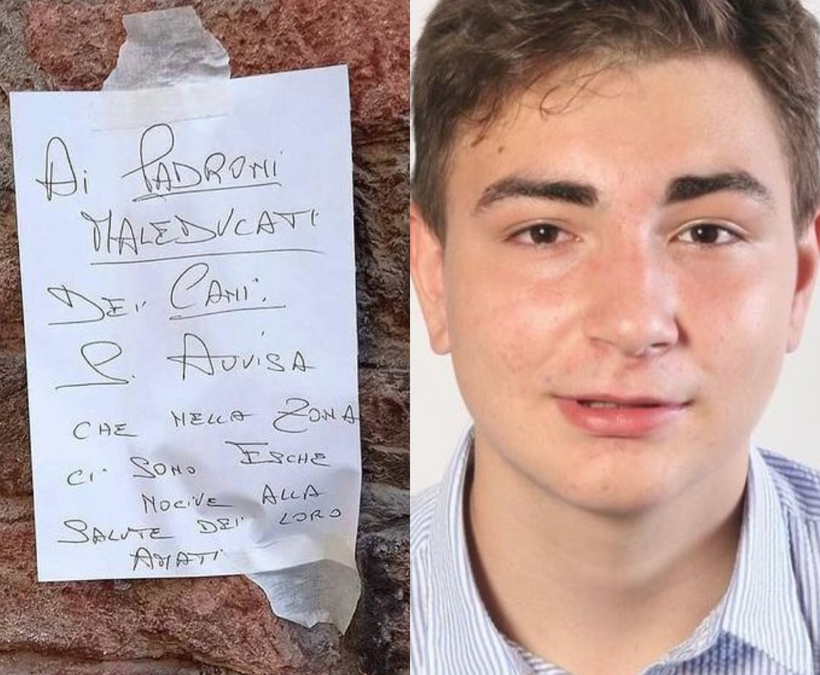 Ai PADRONI
MALEDUCATI
DEI CANI.
SI AVVISA
CHE NELLA ZONA
CI SONO ESCHE
NOCIVE ALLA
SALUTE DEI LORO
AMATI